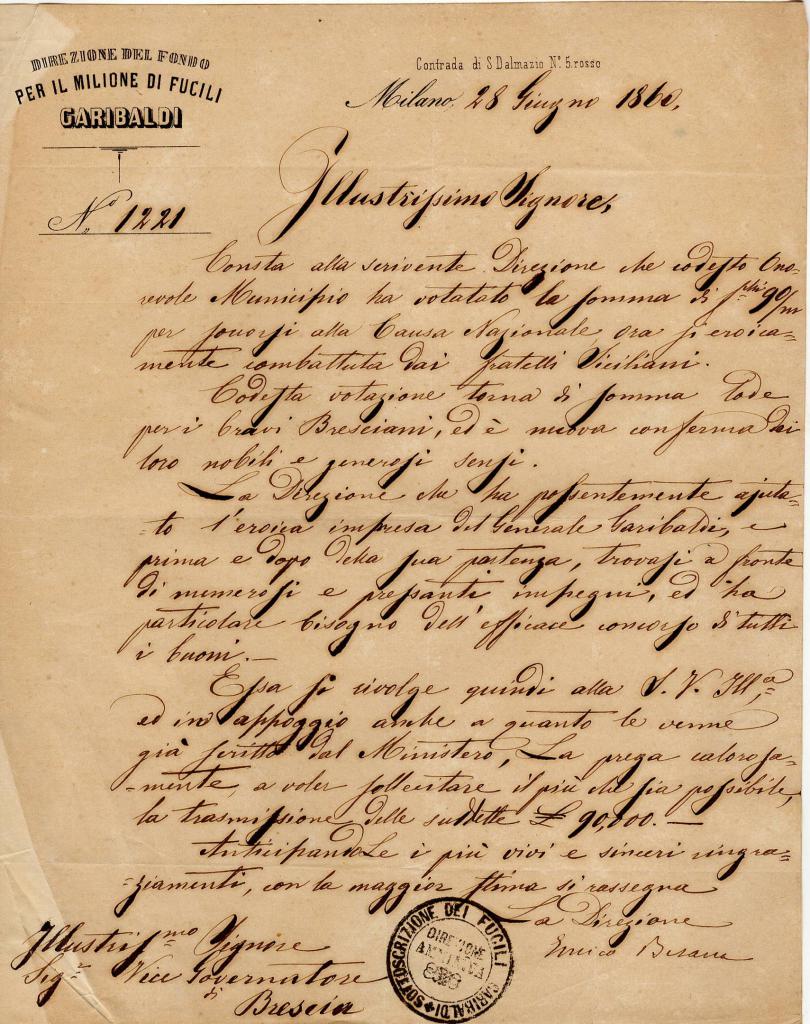 DIREZIONE DEL FONDO
PER IL MILIONE DI FUCILI
GARIBALDI
Contrada di S Dalmazio N.º 5. rosso
Milano, 28 Giugno 1860,
N.º 1221
Illustrissimo Signore,
Consta alla scrivente Direzione che codesto Ono-
revole Municipio ha votatato la somma di 90/m
per soccorsi alla Causa Nazionale, ora sì eroica=
mente combattuta dai fratelli Siciliani.
Codesta votazione torna di somma lode
per i bravi Bresciani, ed è nuova conferma dei
loro nobili e generosi sensi.
La Direzione che ha possentemente ajuta=
=to l'eroica impresa del Generale Garibaldi, e
prima e dopo della sua partenza, trovasi a fronte
di numerosi e pressanti impegni, ed ha
particolare bisogno dell'efficace concorso di tutti
i buoni.—
Essa si rivolge quindi alla S. V. Ill.ª,
ed in appoggio anche a quanto le venne
già scritto dal Ministero, La prega calorosa=
=mente, a voler sollecitare il più che sia possibile,
la trasmissione delle suddette £ 90,000.—
AnticipandoLe i più vivi e sinceri ringra=
=ziamenti, con la maggior stima si rassegna
La Direzione
Enrico Besana
Illustrissmo Signore
Sigr Vice Governatore
di
Brescia
SOTTOSCRIZIONE DEI FUCILI GARIBALDI
DIREZIONE